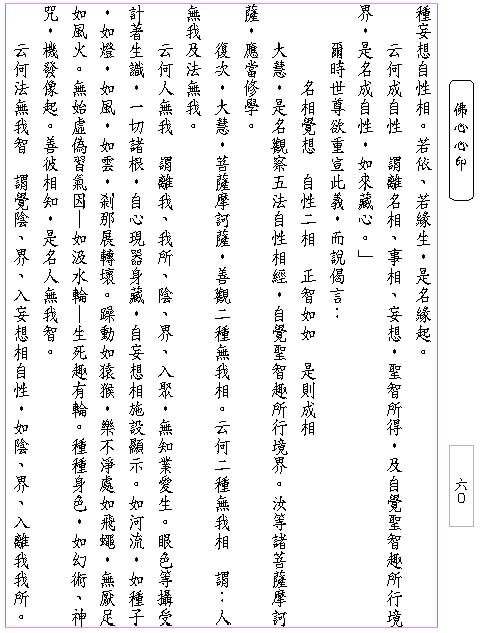 佛心心印
六〇
種妄想自性相。若依、若緣生，是名緣起。
云何成自性　謂離名相、事相、妄想，聖智所得，及自覺聖智趣所行境
界，是名成自性，如來藏心。」
爾時世尊欲重宣此義，而說偈言：
名相覺想　自性二相　正智如如　是則成相
大慧，是名觀察五法自性相經，自覺聖智趣所行境界。汝等諸菩薩摩訶
薩，應當修學。
復次，大慧，菩薩摩訶薩，善觀二種無我相。云何二種無我相　謂：人
無我及法無我。
云何人無我　謂離我、我所、陰、界、入聚，無知業愛生。眼色等攝受
計著生識，一切諸根，自心現器身藏，自妄想相施設顯示。如河流，如種子
，如燈，如風，如雲，剎那展轉壞。躁動如猿猴，樂不淨處如飛蠅，無厭足
如風火。無始虛偽習氣因—如汲水輪—生死趣有輪。種種身色，如幻術、神
咒，機發像起。善彼相知，是名人無我智。
云何法無我智　謂覺陰、界、入妄想相自性，如陰、界、入離我我所。